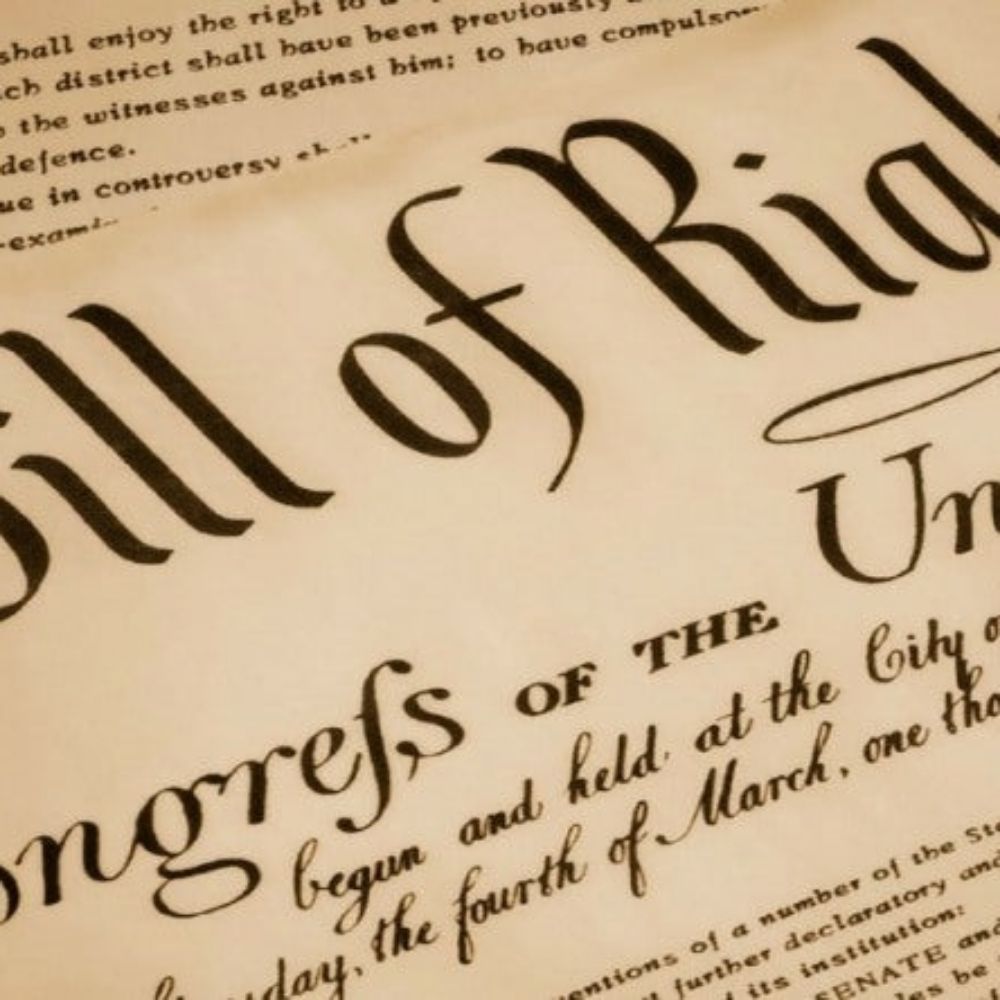 shall enjoy the right to a
ch district shall have been previously
the witnesses against him; to have compulsory
defence.
ue in controversy
-exami
Bill of Rig
Un
ongreſs OF THE
begun and held at the City o
day, the fourth of March, one tho
entions of a number of the Sta
further declaratory and
its institution:
SENATE and
les be